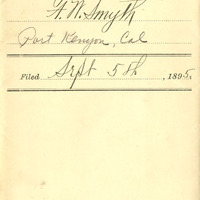 F. W. Smyth
Port Kenyon, Cal
Filed Sept 5th, 1895.